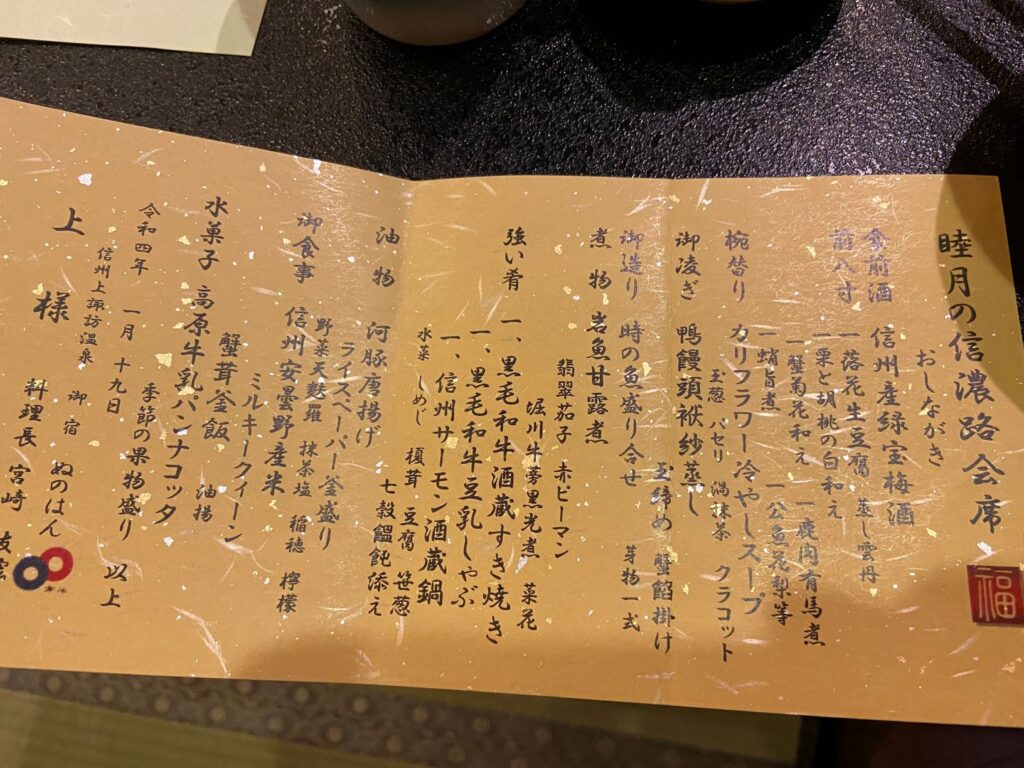 睦月の信濃路会席
福
おしながき
食前酒 信州産緑宝梅酒
前八寸 一落花生豆腐 蒸し雲丹
一栗と胡桃の白和え 一鹿肉有馬煮
一蟹菊花和え 一公魚花梨等
一蛸旨煮
椀替り カリフラワー冷やしスープ
玉葱 パセリ 泡抹茶 クラコット
御凌ぎ 鴨饅頭袱紗蒸し
玉締め 蟹餡掛け
御造り 時の魚盛り合せ 芽物一式
煮物 岩魚甘露煮
堀川牛蒡黒光煮 菜花
翡翠茄子 赤ピーマン
強い肴 一、黒毛和牛酒蔵すき焼き
一、黒毛和牛豆乳しゃぶ
一、信州サーモン酒蔵鍋
水菜 しめじ 榎茸 豆腐 笹葱
七穀饂飩添え
油物 河豚唐揚げ
ライスペーパー釜盛り
野菜天麩羅 抹茶塩 稲穂 檸檬
御食事 信州安曇野産米
ミルキークィーン
蟹茸釜飯 油揚
水菓子 高原牛乳パンナコッタ
季節の果物盛り 以上
令和四年 一月 十九日
信州上諏訪温泉 御宿 ぬのはん
料理長 宮崎
上 様